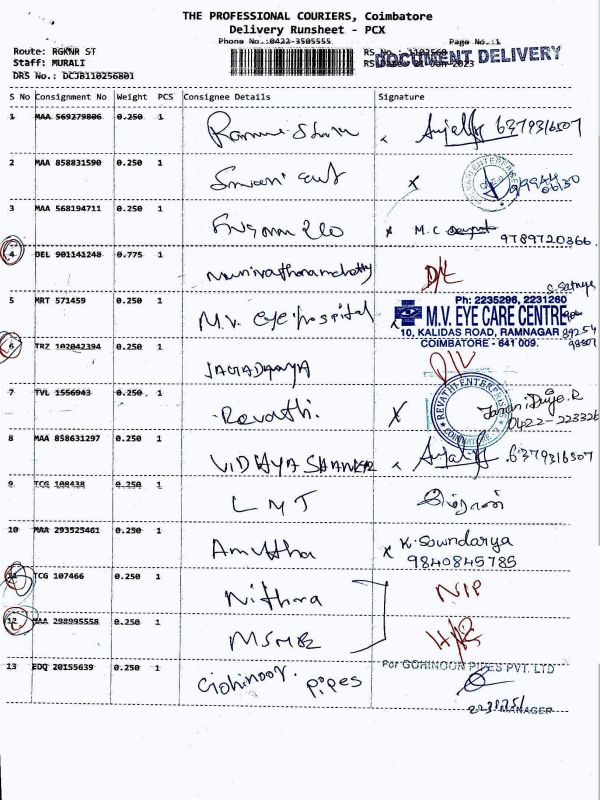 THE PROFESSIONAL COURIERS, Coimbatore
Delivery Runsheet - PCX
Phone No.:0422-3505555 Page No.:1
Route: RGKNR ST RS No.: 1102568
Staff: MURALI RS Date: 21-Jun-2023
DOCUMENT DELIVERY
DRS No.: DCJB110256801
S No Consignment No Weight PCS Consignee Details Signature
1 MAA 569279806 0.250 1 Anjali 6379316507
2 MAA 858831590 0.250 1 x
3 MAA 568194711 0.250 1 x M.C 9789720366.
4 DEL 901141248 0.775 1 D/L
5 MRT 571459 0.250 1 M.V. eye hospital
Ph: 2235296, 2231260
M.V. EYE CARE CENTRE
10, KALIDAS ROAD, RAMNAGAR
COIMBATORE - 641 009.
6 TRZ 102042394 0.250 1 D/L
7 TVL 1556943 0.250 1 Revathi. x REVATHI ENTERPRISES 0422-223326
8 MAA 858631297 0.250 1 VIDHYA SHANKER Anjali .6379316507
9 TCG 108438 0.250 1 LMT
10 MAA 293525461 0.250 1 Amutha x K. Soundarya
9840845785
11 TCG 107466 0.250 1 Nithra NIP
12 MAA 298995558 0.250 1
13 EDQ 20155639 0.250 1 Gohinoor. pipes For GOHINOOR PIPES PVT. LTD
MANAGER